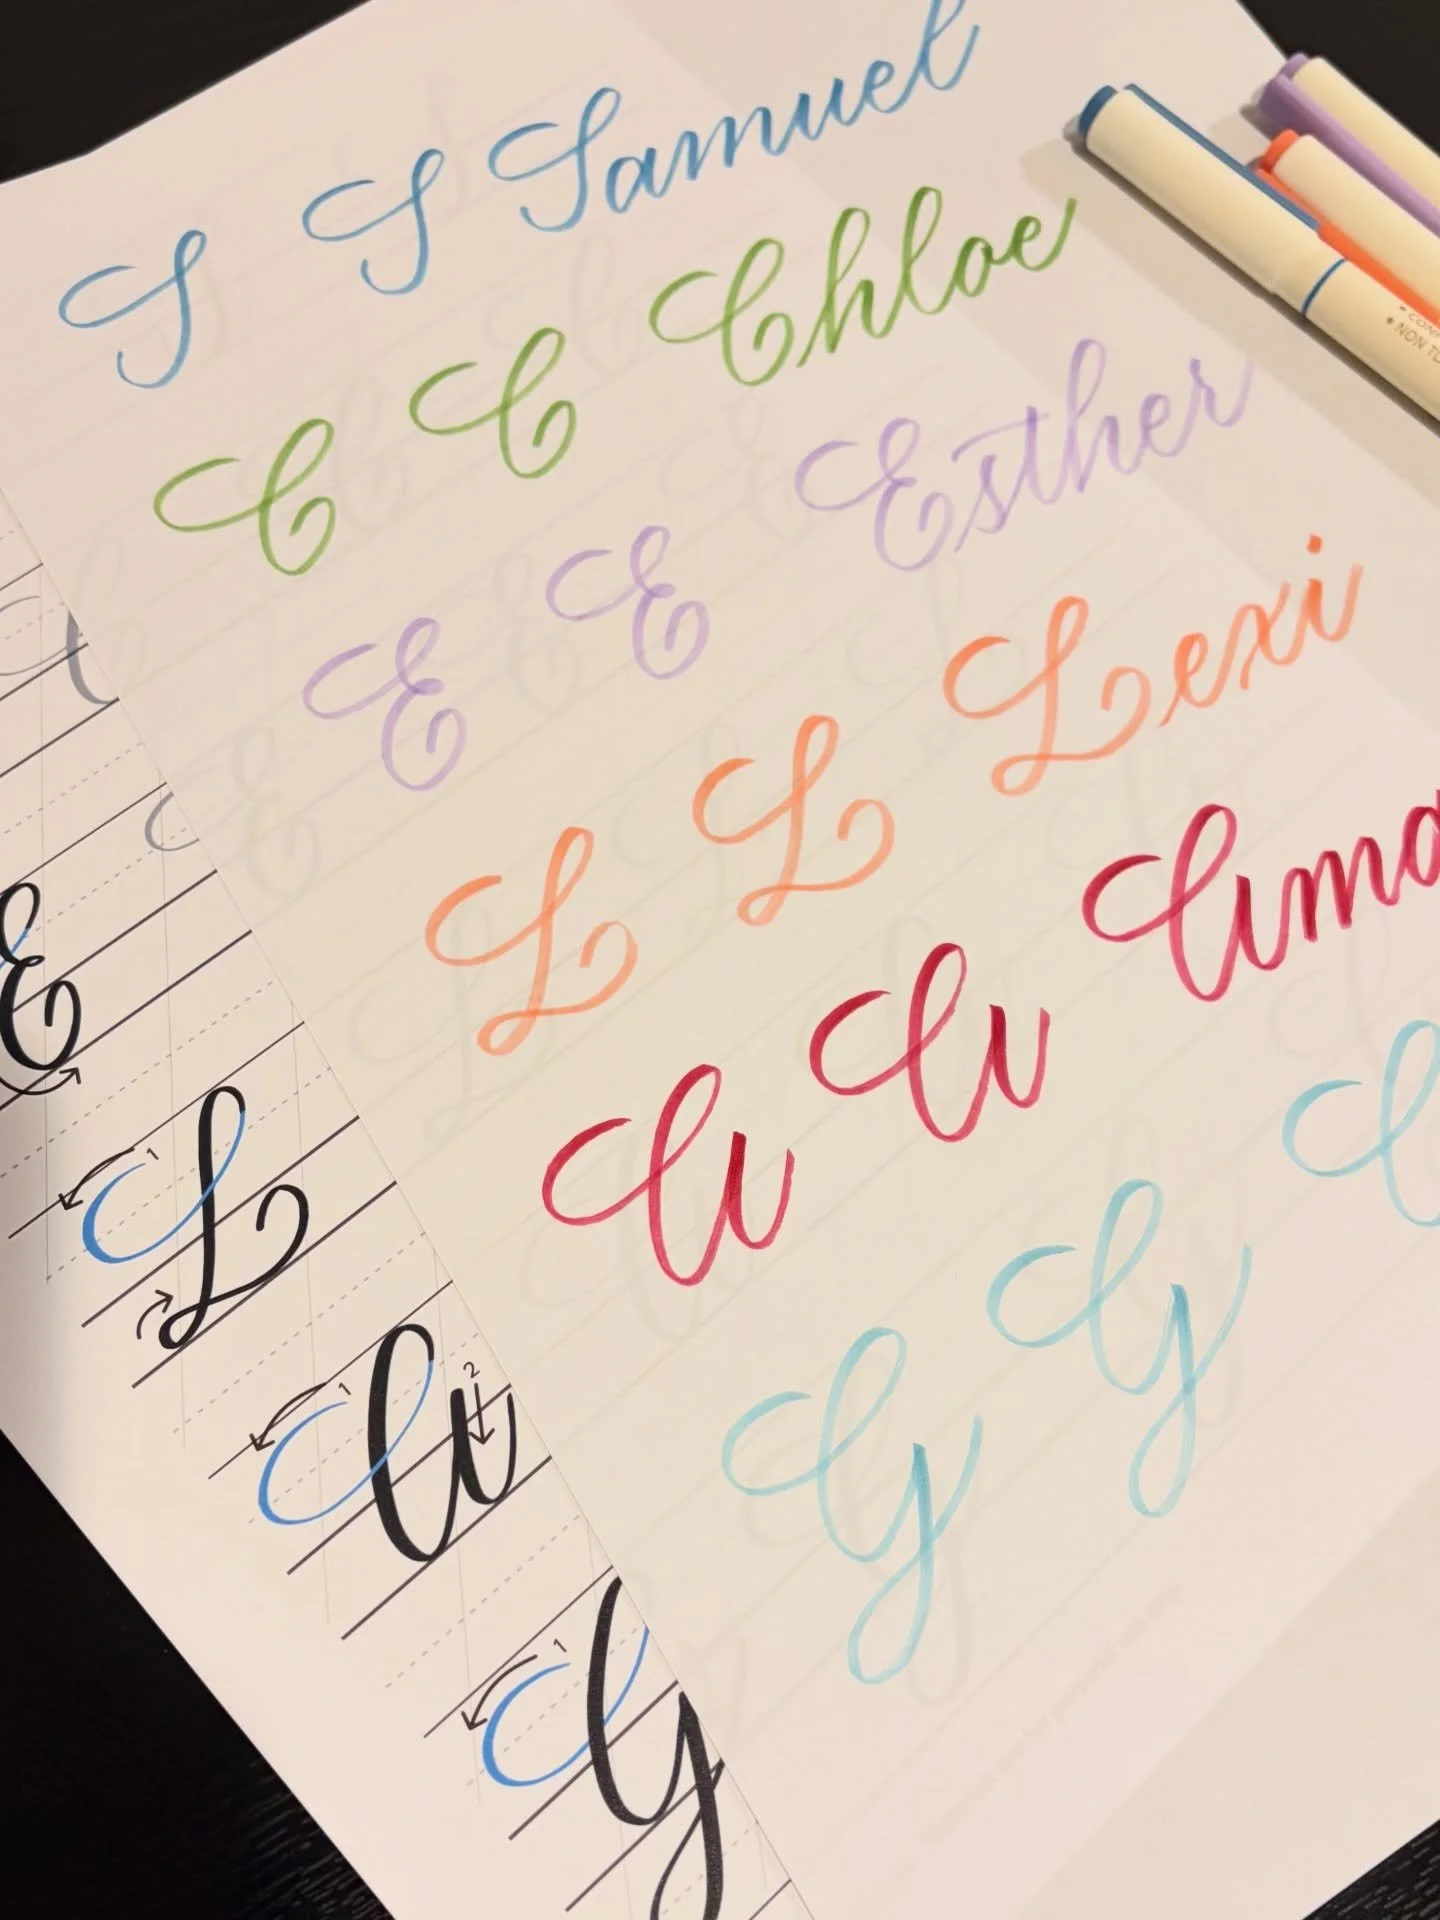 S S Samuel
C C Chloe
E E Esther
L L Lexi
A A Ama
G G G
E
1 L
1 A 2
1 G
NON